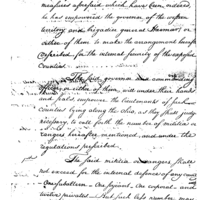 measures aforesaid which have been ordered,
to has empowered the governor of the western
territory and brigadier general Harmar or
either of them to make the arrangement herein
specified for the internal security of the exposed
Counties
The said governor and commanding
officer or either of them, will under their hands
and seals empower the lieutenants of such
Counties lying along the Ohio, as they shall judge
necessary, to call forth the number of militia or
rangers hereafter mentioned, and under the
regulations prescribed.
The said militia or rangers shall
not exceed for the internal defence of any county
One subaltern One serjeant, One corporal and
twelve privates And such less number may